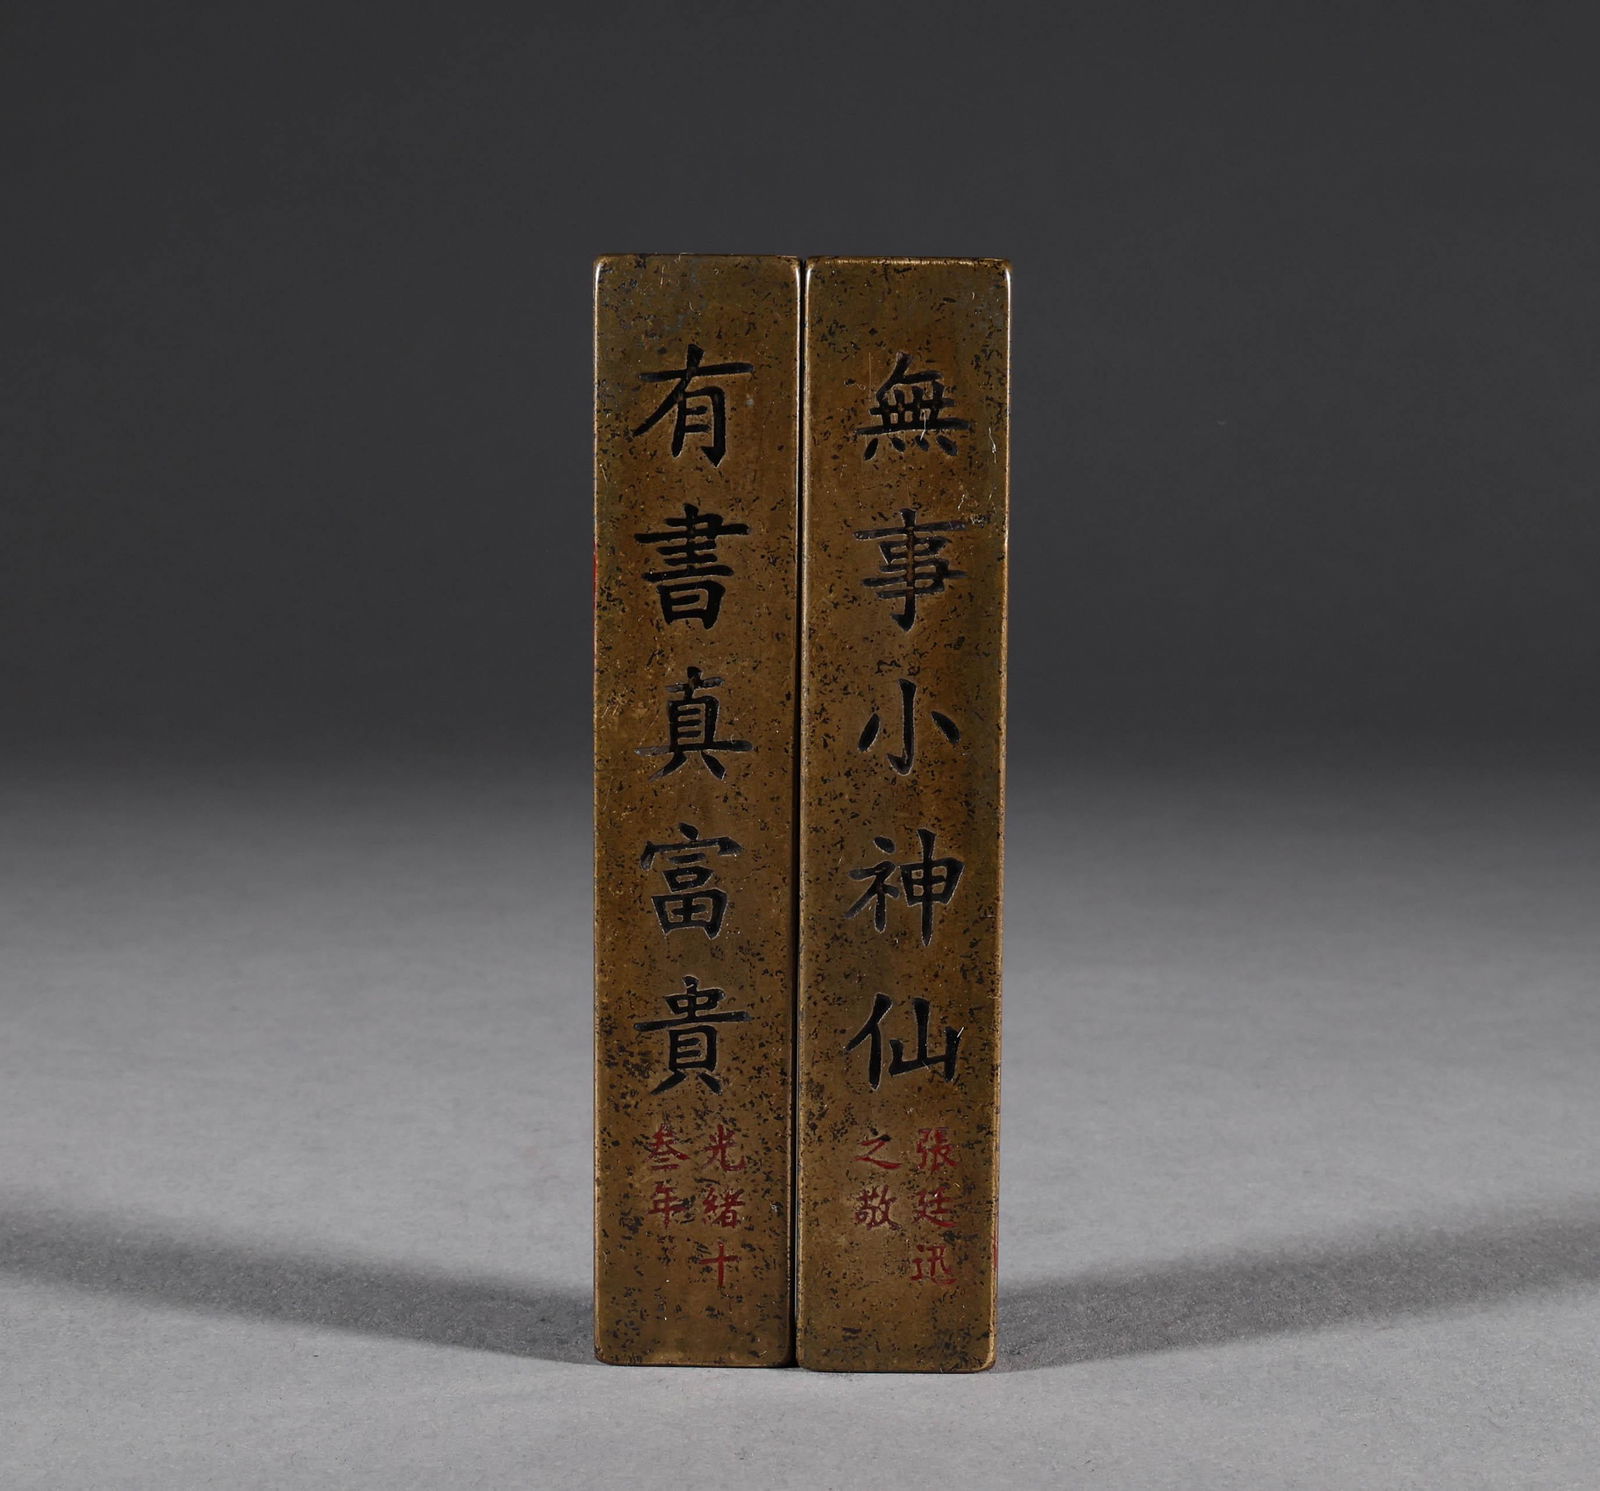 無事小神仙
張廷迅
之敬
有書真富貴
光緒十
叁年